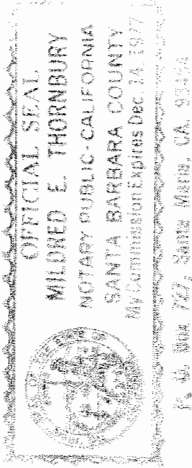 OFFICIAL SEAL
MILDRED E. THORNBURY
NOTARY PUBLIC - CALIFORNIA
SANTA BARBARA COUNTY
My Commission Expires Dec. 14, 1977
P. O. Box 727, Santa Maria, CA.